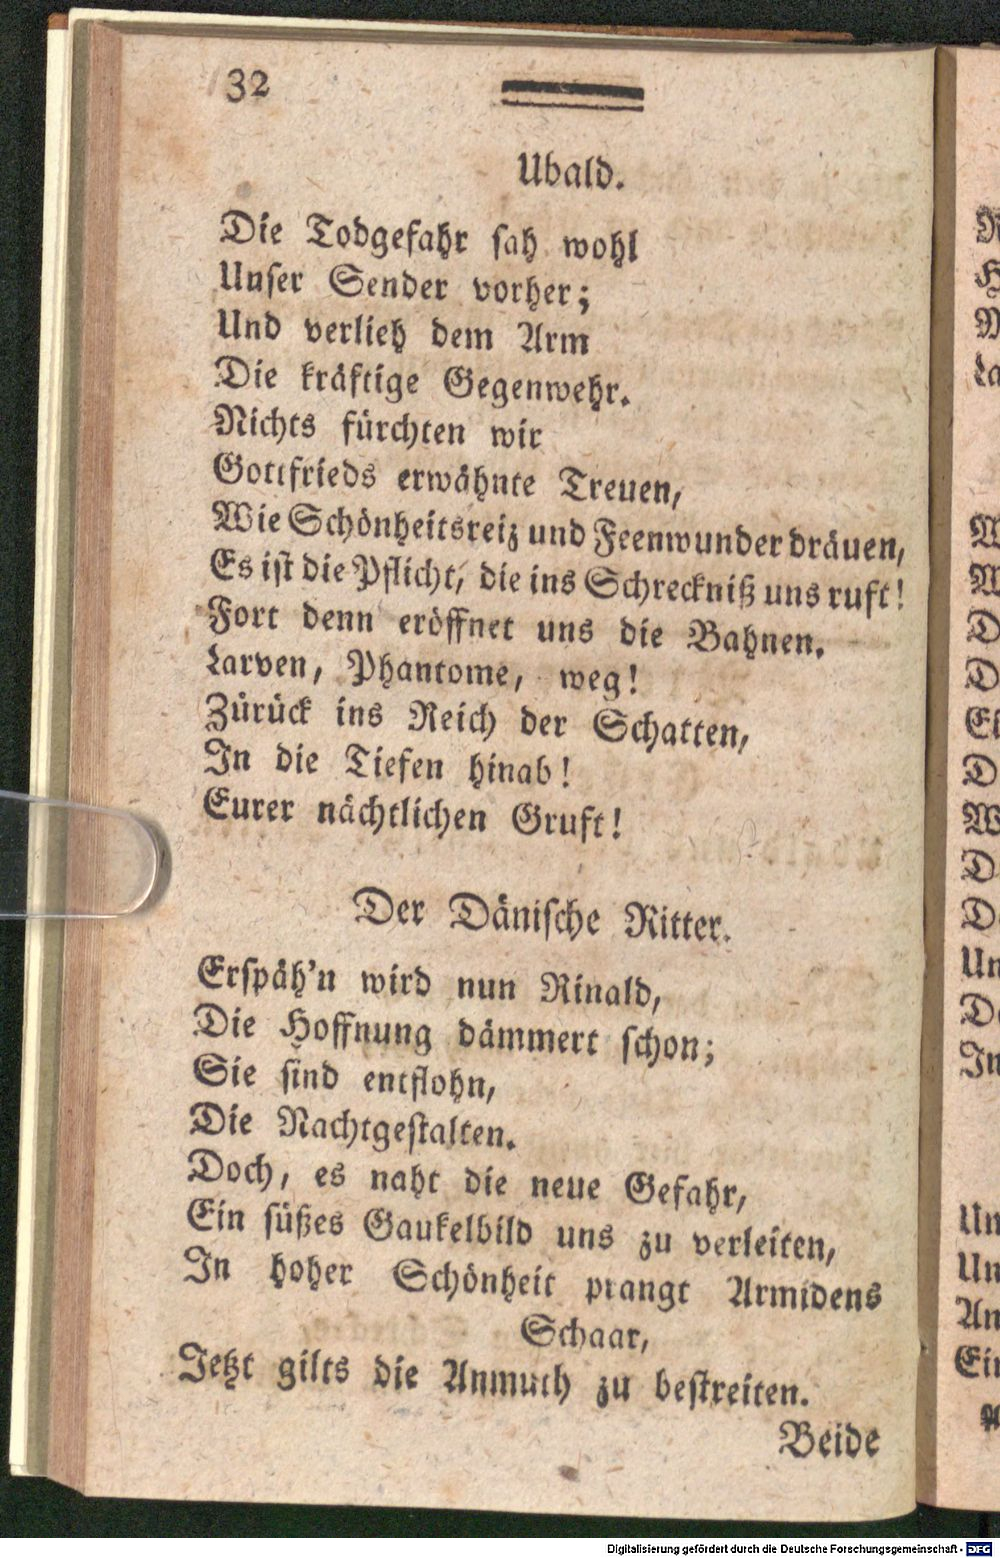 32
Ubald.
Die Todgefahr sah wohl
Unser Sender vorher;
Und verlieh dem Arm
Die kräftige Gegenwehr.
Nichts fürchten wir
Gottfrieds erwähnte Treuen,
Wie Schönheitsreiz und Feenwunder dräuen,
Es ist die Pflicht, die ins Schreckniß uns ruft!
Fort denn eröffnet uns die Bahnen.
Larven, Phantome, weg!
Zürück ins Reich der Schatten,
In die Tiefen hinab!
Eurer nächtlichen Gruft!
Der Dänische Ritter.
Erspäh'n wird nun Rinald,
Die Hoffnung dämmert schon;
Sie sind entflohn,
Die Nachtgestalten.
Doch, es naht die neue Gefahr,
Ein süßes Gaukelbild uns zu verleiten,
In hoher Schönheit prangt Armidens
Schaar,
Jetzt gilts die Anmuth zu bestreiten.
Beide
Digitalisierung gefördert durch die Deutsche Forschungsgemeinschaft - DFG